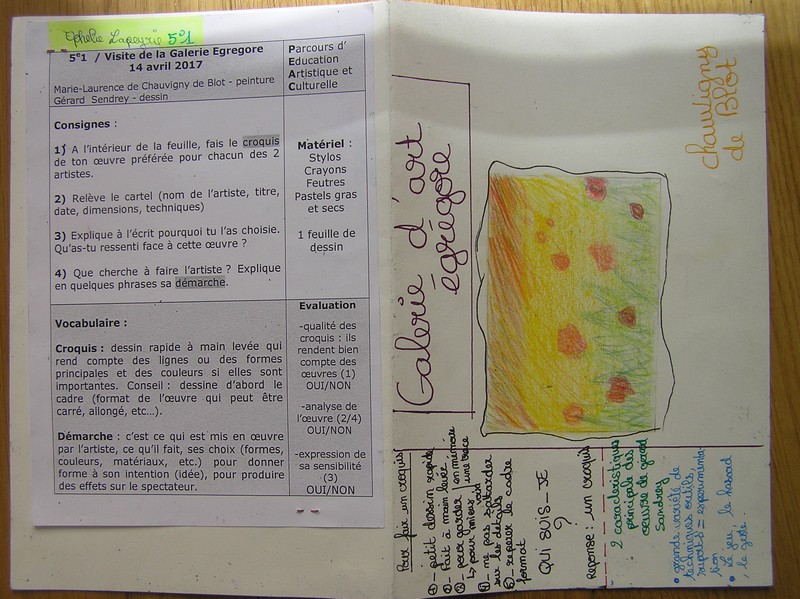 Ophélie Lapeyrie 5e1
5e1 / Visite de la Galerie Egregore
14 avril 2017
Marie-Laurence de Chauvigny de Blot - peinture
Gérard Sendrey - dessin
Parcours d'
Education
Artistique et
Culturelle
Consignes :
1) A l'intérieur de la feuille, fais le croquis
de ton œuvre préférée pour chacun des 2
artistes.
2) Relève le cartel (nom de l'artiste, titre,
date, dimensions, techniques)
3) Explique à l'écrit pourquoi tu l'as choisie.
Qu'as-tu ressenti face à cette œuvre ?
4) Que cherche à faire l'artiste ? Explique
en quelques phrases sa démarche.
Matériel :
Stylos
Crayons
Feutres
Pastels gras
et secs
1 feuille de
dessin
Vocabulaire :
Croquis : dessin rapide à main levée qui
rend compte des lignes ou des formes
principales et des couleurs si elles sont
importantes. Conseil : dessine d'abord le
cadre (format de l'œuvre qui peut être
carré, allongé, etc...).
Démarche : c'est ce qui est mis en œuvre
par l'artiste, ce qu'il fait, ses choix (formes,
couleurs, matériaux, etc.) pour donner
forme à son intention (idée), pour produire
des effets sur le spectateur.
Evaluation
-qualité des
croquis : ils
rendent bien
compte des
œuvres (1)
OUI/NON
-analyse de
l'œuvre (2/4)
OUI/NON
-expression de
sa sensibilité
(3)
OUI/NON
Galerie d'art
égrégore
chauvigny
de Blot
Pour fair un croquis
① - petit dessin rapide
② - Fait à main levée
③ - pour garder en mémoire
une trace
↳ pour mieux voir
④ - ne pas s'attarder
sur les détails
⑤ - reperer le cadre
format
QUI SUIS-JE
?
Reponse : un croquis
2 caractéristiques
principales des
œuvre de gerard
Sandrey
• grande variété de
techniques outils,
supports = expérimenta-
tion
• Le jeu, le hasard
, le geste,